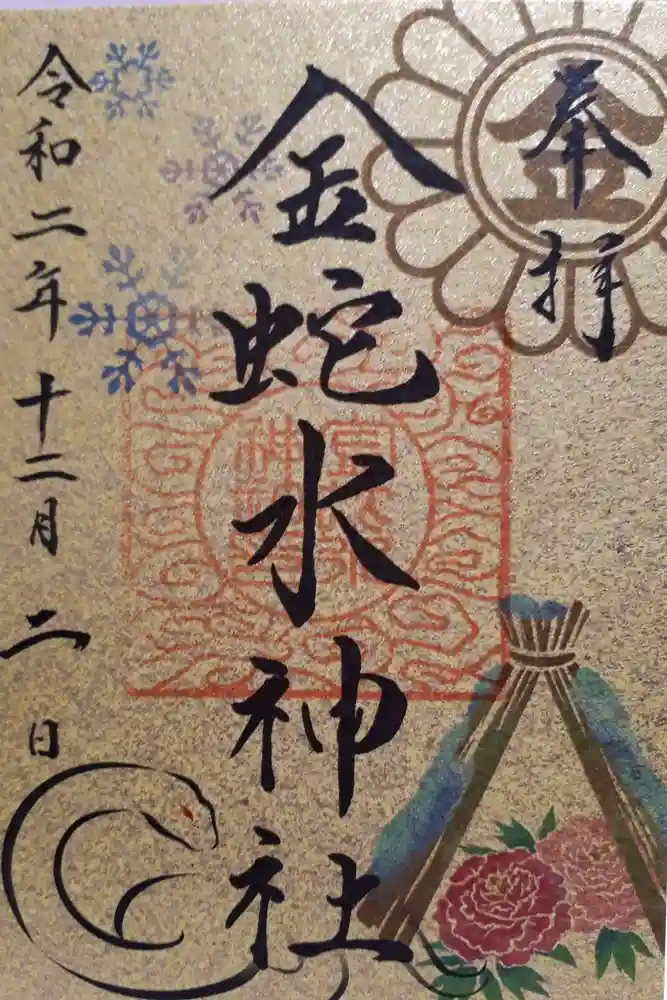 奉拝
金
金蛇水神社
令和二年十二月二日